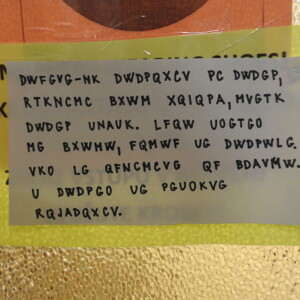 DWFGVG-NK DWDPQXCV PC DWDGP,
RTKNCMC BXWM XQIQPA, MVGTK
DWDGP UNAUK. LFQW UOGTGO
MG BXWMW, FQMWF UG DWDPWLG.
VKO LG QFNCMCVG QF BDAVMW.
U DWDPGO UG PGUOKVG
RQJADQXCV.